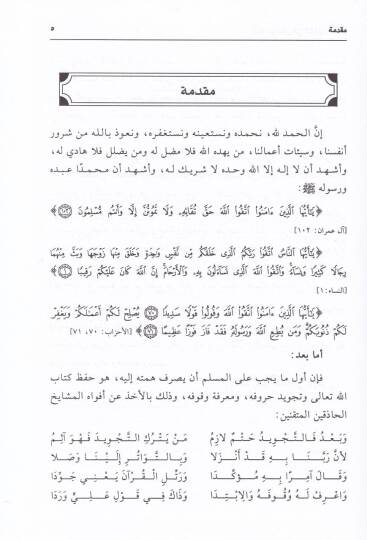 مقدمة ٥
مقدمة
إنَّ الحمد لله، نحمده ونستعينه ونستغفره، ونعوذ بالله من شرور
أنفسنا، وسيئات أعمالنا، من يهده الله فلا مضل له ومن يضلل فلا هادي له،
وأشهد أن لا إله إلا الله وحده لا شريك له، وأشهد أن محمدًا عبده
ورسوله ﷺ:
﴿يَٰٓأَيُّهَا ٱلَّذِينَ ءَامَنُواْ ٱتَّقُواْ ٱللَّهَ حَقَّ تُقَاتِهِۦ وَلَا تَمُوتُنَّ إِلَّا وَأَنتُم مُّسۡلِمُونَ ١٠٢﴾
[آل عمران: ١٠٢]
﴿يَٰٓأَيُّهَا ٱلنَّاسُ ٱتَّقُواْ رَبَّكُمُ ٱلَّذِي خَلَقَكُم مِّن نَّفۡسٖ وَٰحِدَةٖ وَخَلَقَ مِنۡهَا زَوۡجَهَا وَبَثَّ مِنۡهُمَا
رِجَالٗا كَثِيرٗا وَنِسَآءٗۚ وَٱتَّقُواْ ٱللَّهَ ٱلَّذِي تَسَآءَلُونَ بِهِۦ وَٱلۡأَرۡحَامَۚ إِنَّ ٱللَّهَ كَانَ عَلَيۡكُمۡ رَقِيبٗا ١﴾
[النساء: ١]
﴿يَٰٓأَيُّهَا ٱلَّذِينَ ءَامَنُواْ ٱتَّقُواْ ٱللَّهَ وَقُولُواْ قَوۡلٗا سَدِيدٗا ٧٠ يُصۡلِحۡ لَكُمۡ أَعۡمَٰلَكُمۡ وَيَغۡفِرۡ
لَكُمۡ ذُنُوبَكُمۡۗ وَمَن يُطِعِ ٱللَّهَ وَرَسُولَهُۥ فَقَدۡ فَازَ فَوۡزًا عَظِيمًا ٧١﴾ [الأحزاب: ٧٠، ٧١]
أما بعد:
فإن أول ما يجب على المسلم أن يصرف همته إليه، هو حفظ كتاب
الله تعالى وتجويد حروفه، ومعرفة وقوفه، وذلك بالأخذ عن أفواه المشايخ
الحاذقين المتقنين:
وَبَعْدُ فَالتَّجْوِيدُ حَتْمٌ لازِمُ مَنْ يَتْرُكِ التَّجْوِيدَ فَهْوَ آثِمُ
لأنَّ رَبَّنَا بِهِ قَدْ أَنْزَلا وَبِالتَّوَاتُرِ إِلَيْنَا وَصَلا
وَقَالَ آمِرًا بِهِ مُؤَكِّدًا وَرَتِّلِ الْقُرْآنَ يَعْنِي جَوِّدَا
وَاعْرِفْ لَهُ وُقُوفَهُ وَالابْتِدَا وَذَاكَ فِي قَوْلِ عَلِيٍّ وَرَدَا